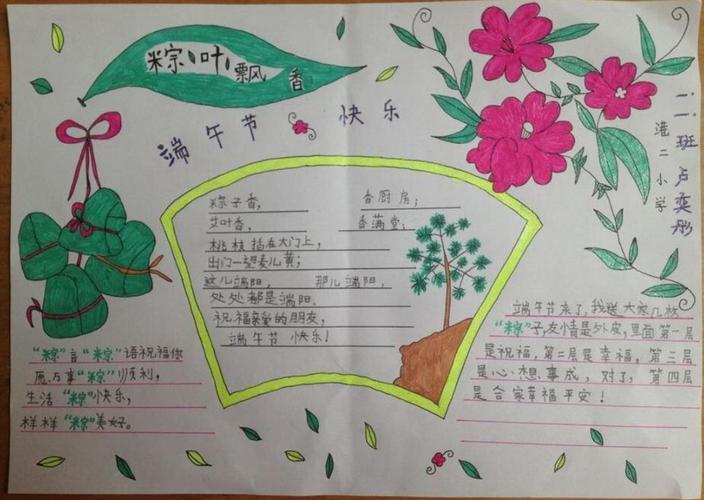 粽叶飘香
端午节 快乐
二.二班 卢奕彤
港二小学
粽子香， 香厨房；
艾叶香， 香满堂；
桃枝插在大门上，
出门一望麦儿黄；
这儿端阳， 那儿端阳，
处处都是端阳。
祝福亲爱的朋友，
端午节快乐！
“粽”言“粽”语祝福你
愿万事“粽”顺利，
生活“粽”快乐，
样样“粽”美好。
端午节来了，我送大家几枚
“粽”子，友情是外皮，里面第一层
是祝福，第二层是幸福，第三层
是心想事成，对了，第四层
是合家幸福平安！